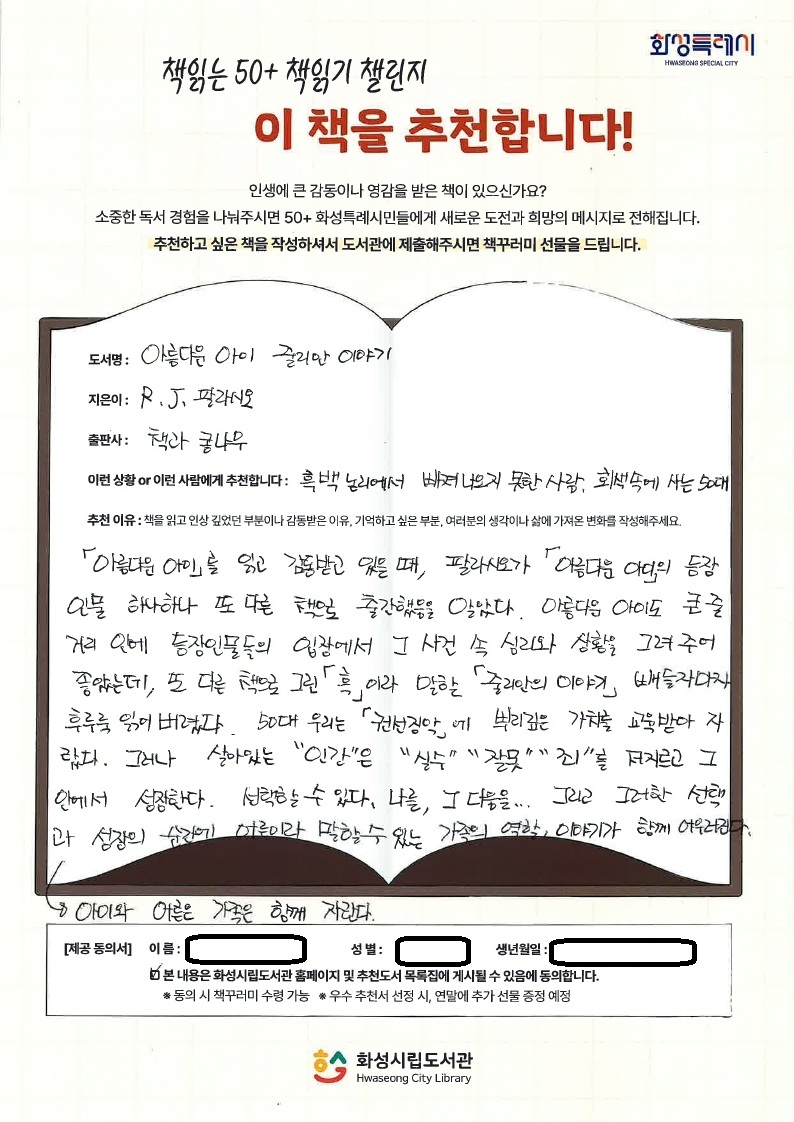 화성특례시
HWASEONG SPECIAL CITY
책읽는 50+ 책읽기 챌린지
이 책을 추천합니다!
인생에 큰 감동이나 영감을 받은 책이 있으신가요?
소중한 독서 경험을 나눠주시면 50+ 화성특례시민들에게 새로운 도전과 희망의 메시지로 전해집니다.
추천하고 싶은 책을 작성하셔서 도서관에 제출해주시면 책꾸러미 선물을 드립니다.
도서명 : 아름다운 아이 줄리안 이야기
지은이 : R. J. 팔라시오
출판사 : 책과 콩나무
이런 상황 or 이런 사람에게 추천합니다 : 흑백 논리에서 빠져나오지 못한 사람, 회색속에 사는 50대
추천 이유 : 책을 읽고 인상 깊었던 부분이나 감동받은 이유, 기억하고 싶은 부분, 여러분의 생각이나 삶에 가져온 변화를 작성해주세요.
「아름다운 아이」를 읽고 감동받고 있을 때, 팔라시오가 「아름다운 아이」의 등장
인물 하나하나 또 다른 책으로 출간했음을 알았다. 아름다운 아이도 큰 줄
거리 안에 등장인물들의 입장에서 그 사건 속 심리와 상황을 그려 주어
좋았는데, 또 다른 책으로 그린 「흑」이라 말할 「줄리안의 이야기」 빼들자마자
후루룩 읽어 버렸다. 50대 우리는 「권선징악」에 뿌리깊은 가치를 교육받아 자
랐다. 그러나 살아있는 "인간"은 "실수" "잘못" "죄"를 저지르고 그
안에서 성장한다. 선택할 수 있다, 나를, 그 다음을... 그리고 그러한 선택
과 성장의 순간에 어른이라 말할 수 있는 가족의 역할, 이야기가 함께 어우러진다.
아이와 어른은 가족은 함께 자란다.
[제공 동의서] 이 름 : 성 별 : 생년월일 :
☑ 본 내용은 화성시립도서관 홈페이지 및 추천도서 목록집에 게시될 수 있음에 동의합니다.
※ 동의 시 책꾸러미 수령 가능 ※ 우수 추천서 선정 시, 연말에 추가 선물 증정 예정
화성시립도서관
Hwaseong City Library